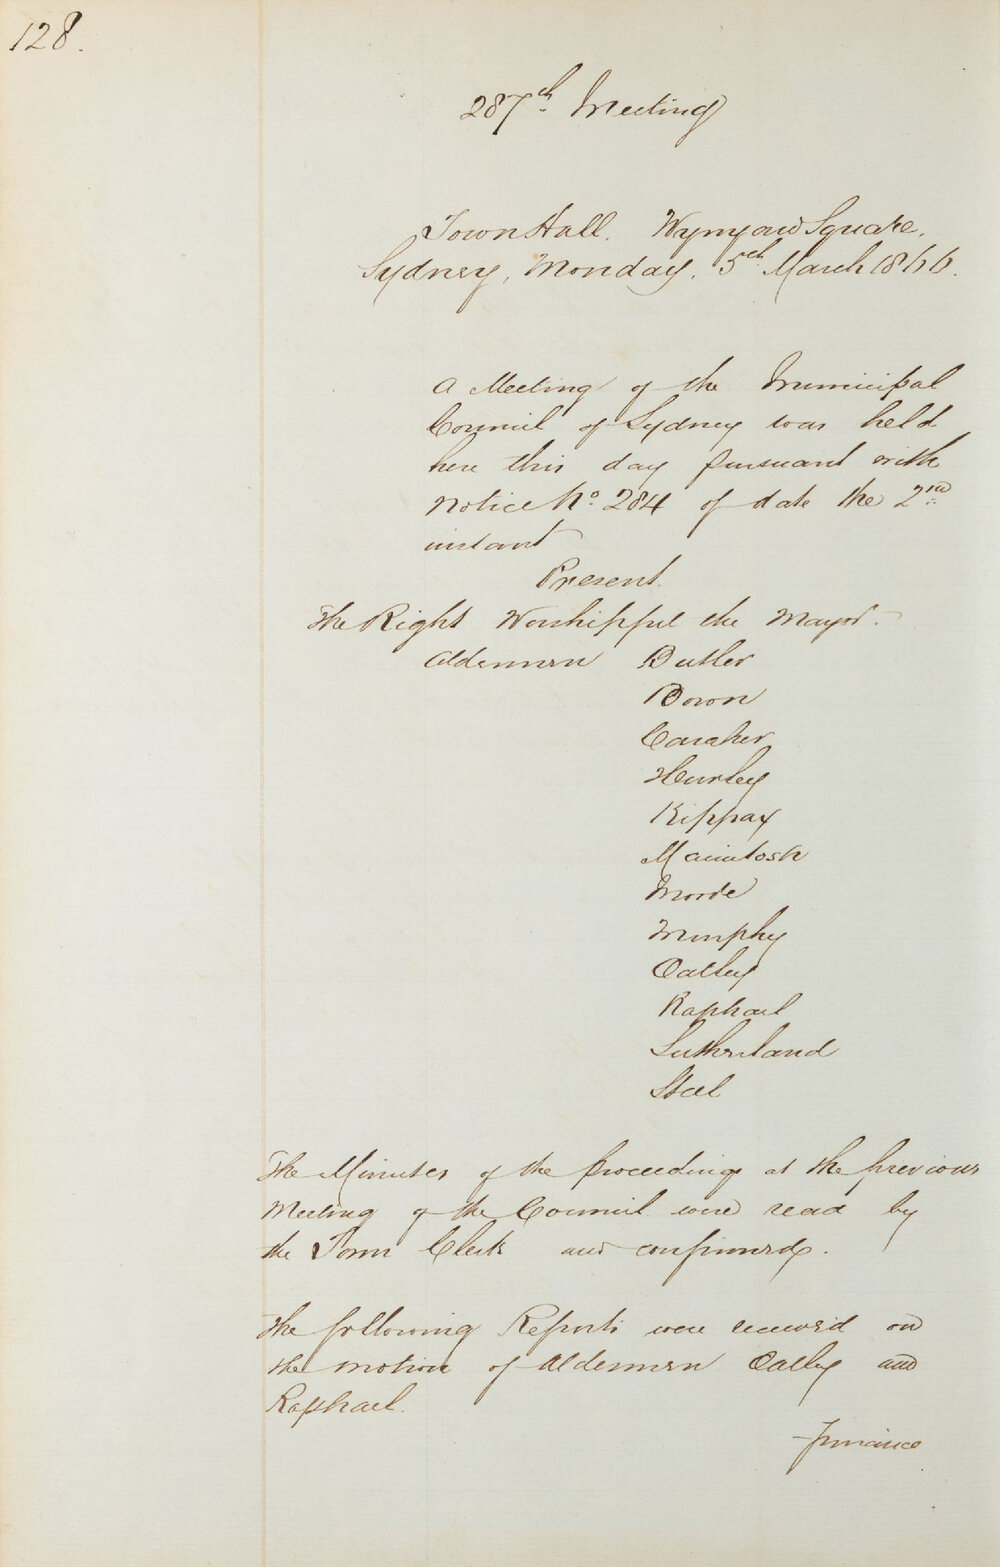 128.
287th Meeting
Town Hall. Wynyard Square.
Sydney, Monday, 5th March 1866.
A Meeting of the Municipal
Council of Sydney was held
here this day pursuant with
notice No. 284 of date the 2nd
instant
Present.
The Right Worshipful the Mayor.
Aldermen Butler
Bown
Caraher
Hurley
Kippax
Macintosh
Moore
Murphy
Oatley
Raphael
Sutherland
Steel
The Minutes of the proceedings at the previous
Meeting of the Council were read by
the Town Clerk and confirmed.
The following Reports were received on
the motion of Aldermen Oatley and
Raphael.
Finance